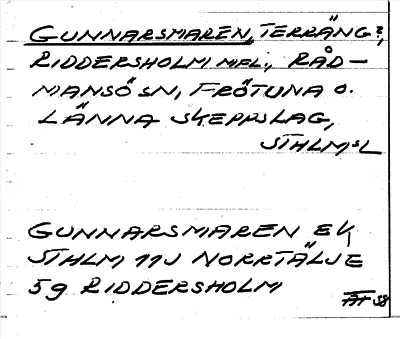 GUNNARSMAREN, TERRÄNG?,
RIDDERSHOLM MFL., RÅD-
MANSÖ SN, FRÖTUNA O.
LÄNNA SKEPPSLAG,
STHLMSL
GUNNARSMAREN EK
STHLM 11J NORRTÄLJE
5g RIDDERSHOLM
58